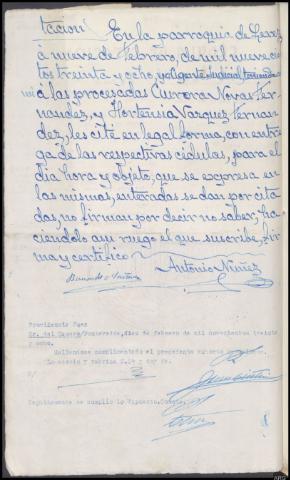 tacion En la parroquia de
a nueve de febrero, de mil nuevecien
tos treinta y ocho, yo Agente Judicial teniendo
a las procesadas Aurora Novas Fer-
nandez, y Hortensia Vazquez Fernan
dez, les cité en legal forma, con entre
ga de las respectivas cédulas, para el
dia hora y objeto, que se expresa en
las mismas, enteradas se dan por cita
das, no firman por decir no saber, ha
ciéndolo a su ruego el que suscribe, fir
ma y certifico
Antonio Nuñez
Providencia Juez
Sr. del Pontevedra, diez de febrero de mil novecientos treinta
y ocho.
Hallándose cumplimentado el precedente
Lo acordó y rubrica S.Sª y doy fe.
Seguidamente se cumplió lo